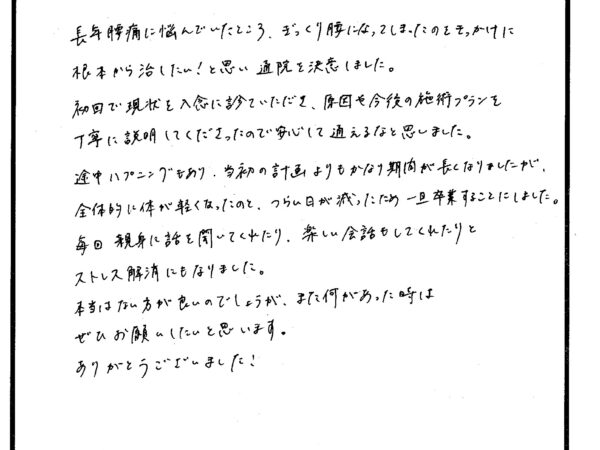 長年腰痛に悩んでいたところ、ぎっくり腰になってしまったのをきっかけに
根本から治したい！と思い通院を決意しました。
初回で現状を入念に診ていただき、原因や今後の施術プランを
丁寧に説明してくださったので安心して通えるなと思いました。
途中ハプニングもあり、当初の計画よりもかなり期間が長くなりましたが、
全体的に体が軽くなったのと、つらい日が減ったため一旦卒業することにしました。
毎回親身に話を聞いてくれたり、楽しい会話もしてくれたりと
ストレス解消にもなりました。
本当はない方が良いのでしょうが、また何があった時は
ぜひお願いしたいと思います。
ありがとうございました！